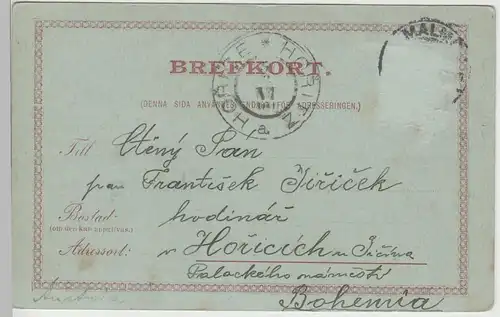 MALM
BREFKORT.
HOŘICE * HORITZ
a
(DENNA SIDA ANVÄNDES ENDAST FÖR ADRESSERINGEN.)
Till Ctěný Pan
pan František Jiřiček
Bostad: hodinář
(om den kan uppgifvas.)
Adressort: v Hořicích u Jičína
Palackého náměstí
Bohemia